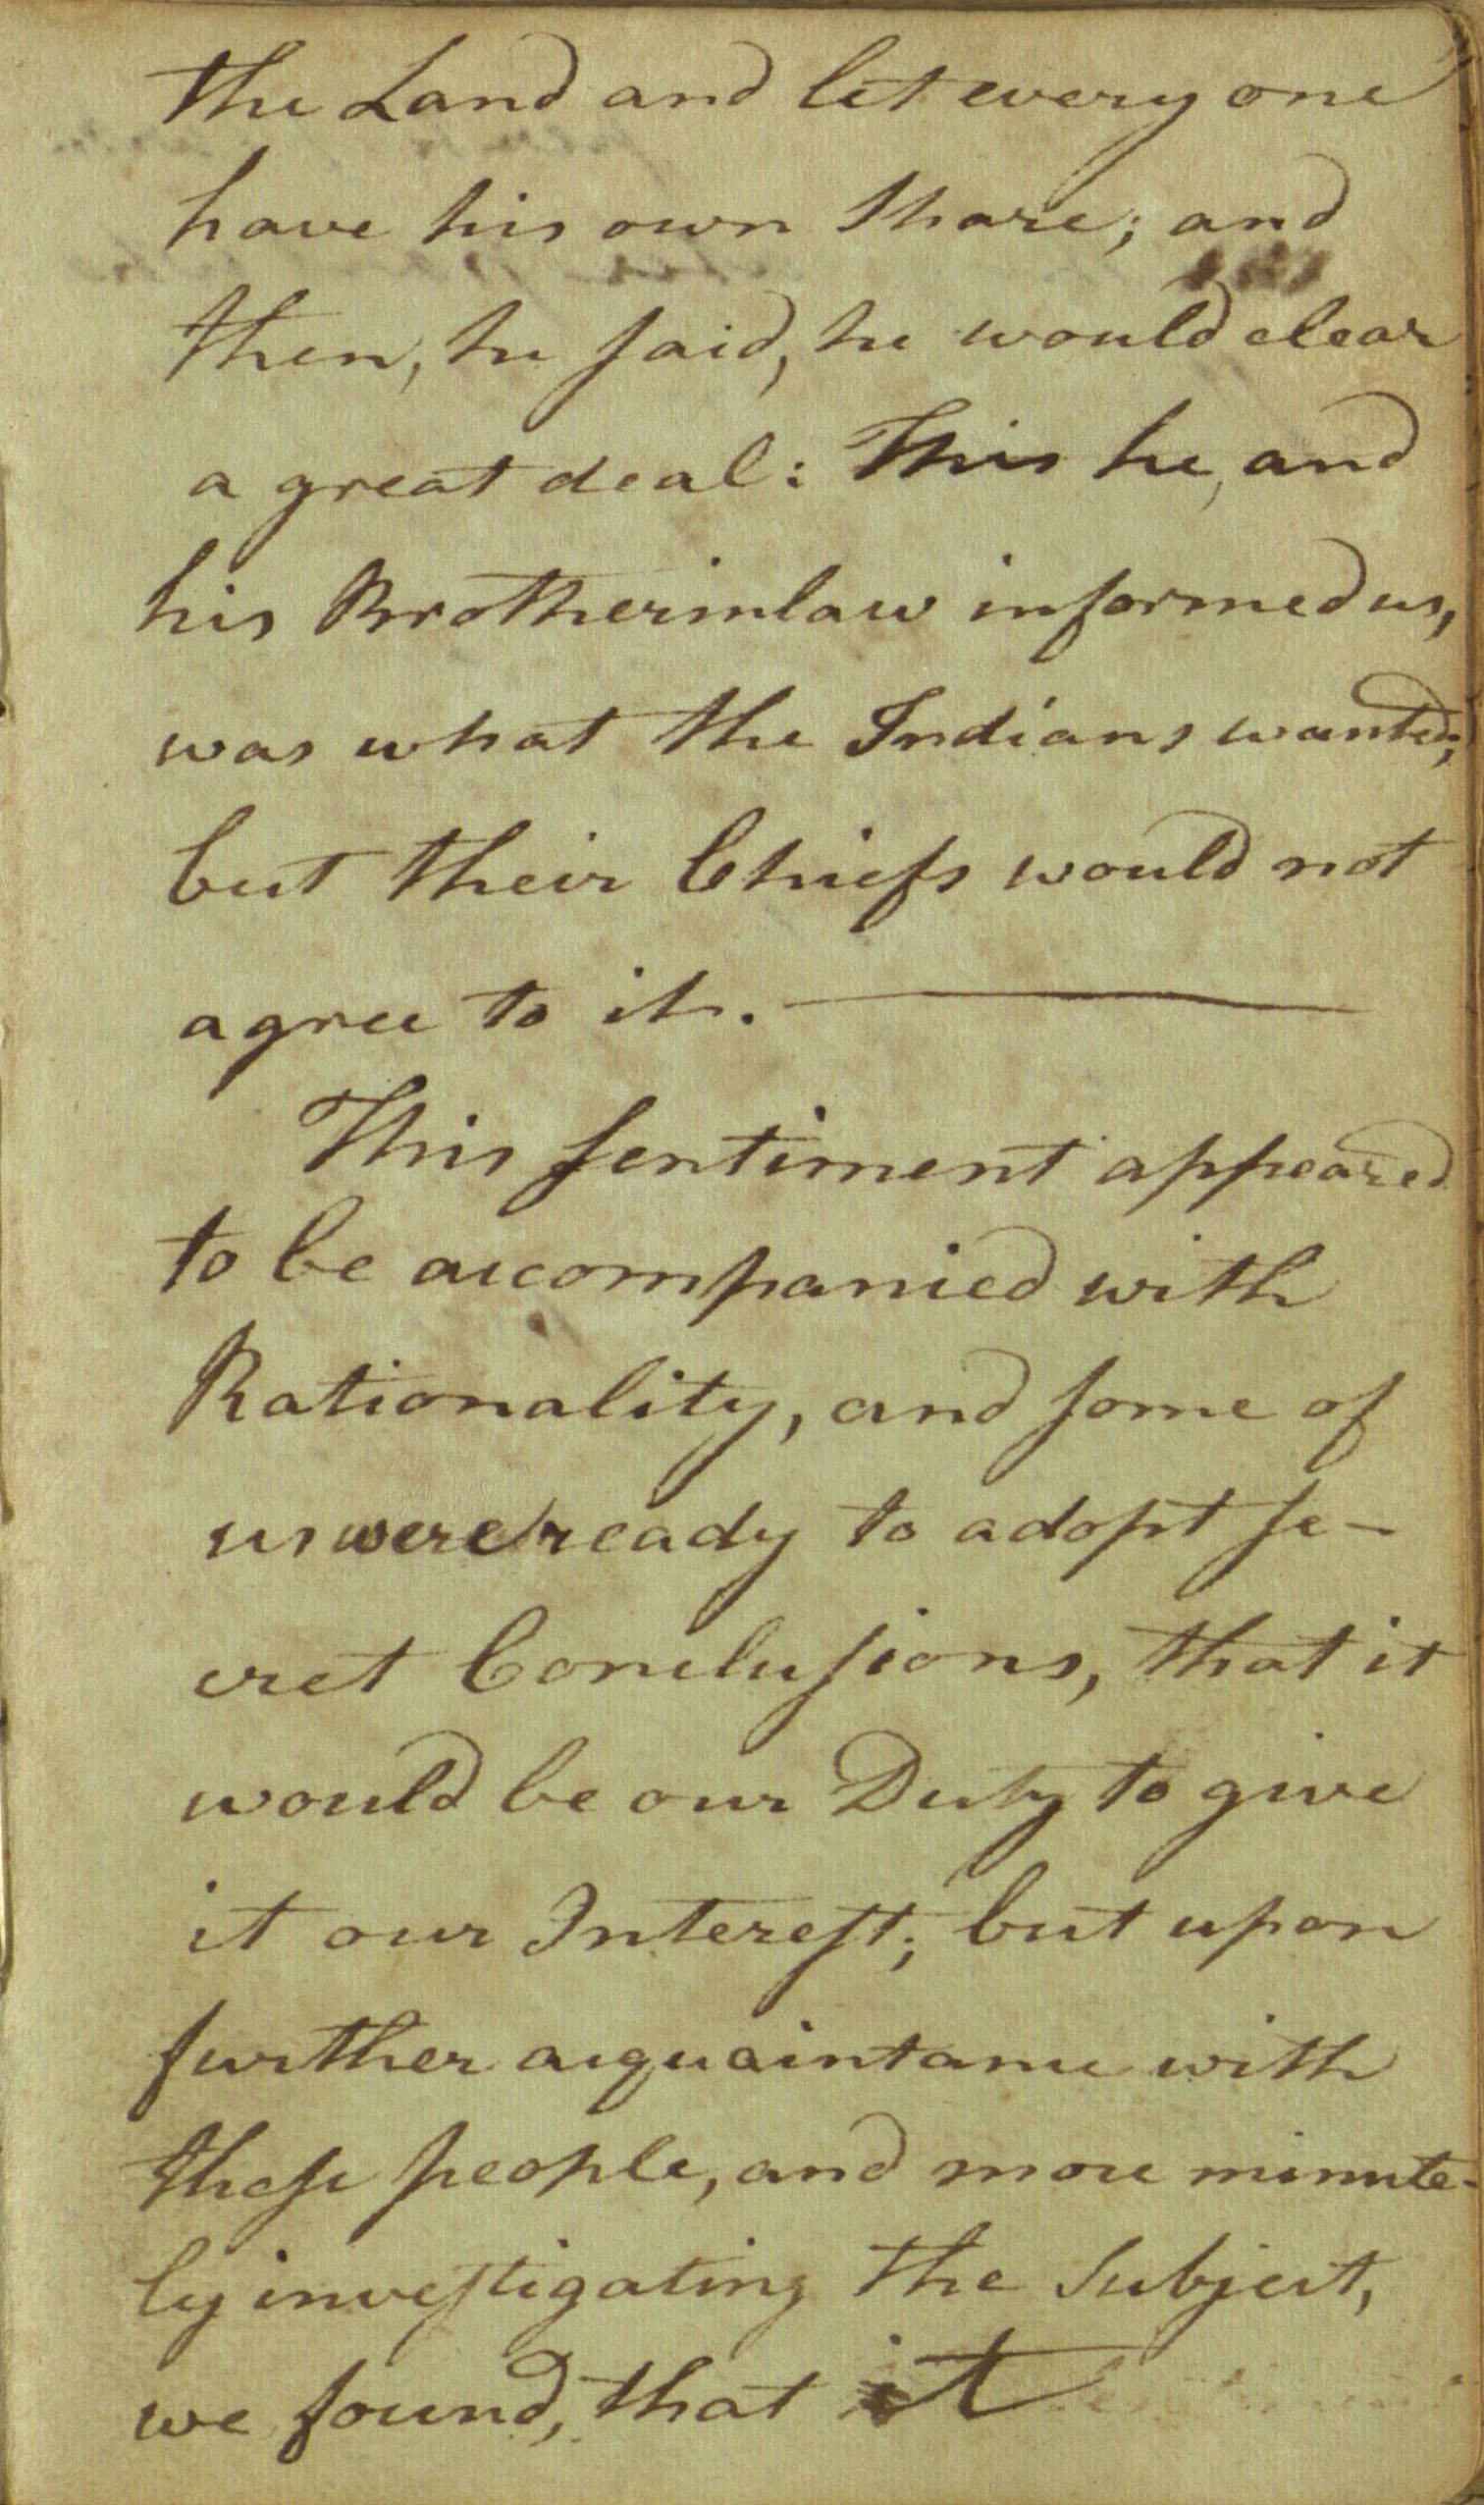 the Land and let every one
have his own Share; and
then, he said, he would clear
a great deal: This he, and
his Brotherinlaw informed us,
was what the Indians wanted;
but their Chiefs would not
agree to it.
This sentiment appeared
to be accompanied with
Rationality, and some of
us were ready to adopt se-
cret Conclusions, that it
would be our Duty to give
it our Interest; but upon
further acquaintance with
these people, and more minute-
ly investigating the Subject,
we found, that it